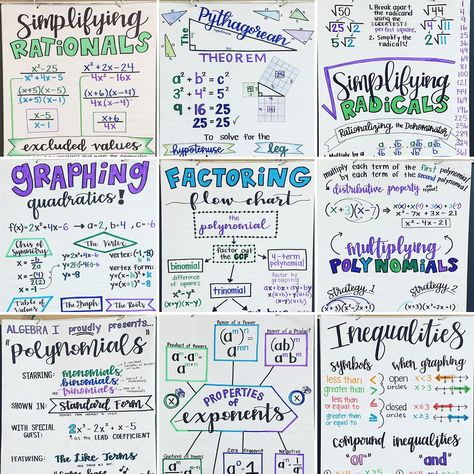 Simplifying
RATIONALS
x²-25
x²+4x-5
x²+2x-24
4x²-16x
(x+5)(x-5)
(x+5)(x-1)
(x+6)(x-4)
4x(x-4)
x-5
x-1
x+6
4x
excluded values
The
Pythagorean
THEOREM
a² + b² = c²
3² + 4² = 5²
9 + 16 = 25
25 = 25
To solve for the
hypotenuse
leg
√50
√25 √2
5√2
1. Break apart
the radicand
using the
GREATEST
perfect square.
2. Simplify
the radicals!
√44
√4 √11
2√11
Simplifying
RADICALS
Rationalizing the Denominator
Multiply by
GRAPHING
quadratics!
f(x)=2x²+4x-6 → a=2, b=4, c=-6
Axis of
Symmetry
x = -b/2a
x = -(4)/2(2)
x = -1
The Vertex
y=2x²+4x-6
y=-8
vertex: (-1,-8)
vertex form:
Table of
Values
The Graph
The Roots
FACTORING
flow chart
the
polynomial
factor out
the GCF
binomial
4-term
polynomial
difference of
squares
x²-y²
(x+y)(x-y)
trinomial
factor by
grouping
multiply each term of the first polynomial
by each term of the second polynomial
distributive property
(x+3)(x-7)
x²-7x+3x-21
x²-4x-21
multiplying
POLYNOMIALS
Strategy 1
(x+3)(x²-2x+1)
Strategy 2
(x+3)(x²-2x+1)
ALGEBRA I proudly presents...
"Polynomials"
STARRING:
monomials
binomials
trinomials
SHOWN IN:
Standard Form
WITH SPECIAL
GUEST:
2x³-2x²+x-5
as the LEAD COEFFICIENT
FEATURING:
The Like Terms
Product of Powers
aᵐ·aⁿ
Power of a Power
(aᵐ)ⁿ
Power of a Product
(ab)ᵐ
PROPERTIES
of
exponents
Zero
Exponent
a⁰=1
Negative
Inequalities
symbols
less than
greater than
less than
or equal to
greater than
or equal to
<
>
≤
≥
when graphing
open
circles
x<3
x>3
closed
circles
x≤3
x≥3
compound inequalities
"or"
"and"